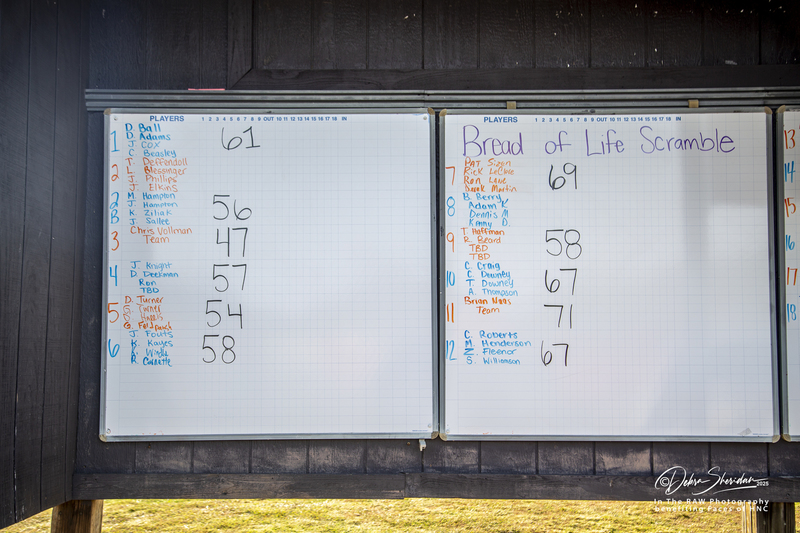 PLAYERS 1 2 3 4 5 6 7 8 9 OUT 10 11 12 13 14 15 16 17 18 IN
1 D. Ball 61
D. Adams
J. COX
C. Beasley
2 T. Deffendoll
L. Blessinger
J. Phillips
J. Elkins
2B M. Hampton 56
J. Hampton
K. Ziliak
J. Sallee
3 Chris Vollman 47
Team
4 J. Knight 57
D. Deekman
Ron
TBD
5 D. Turner 54
S. Turner
S.
G.
6 J. Fouts 58
K. Kayes
R.
PLAYERS 1 2 3 4 5 6 7 8 9 OUT 10 11 12 13 14 15 16 17 18 IN
Bread of Life Scramble
7 PAT 69
Rick
Ron Lane
Derek Martin
8 B. Berry
Adam K
Dennis M
Kenny D.
9 T. Hoffman 58
R. Beard
TBD
TBD
10 C. Craig 67
C. Downey
T. Downey
A. Thompson
11 Brian Haas 71
Team
12 C. Roberts 67
M. Henderson
Z. Fleenor
S. Williamson
13
14
15
16
17
18
©Debra Sheridan 2025
In The RAW Photography
benefiting Faces of HNC